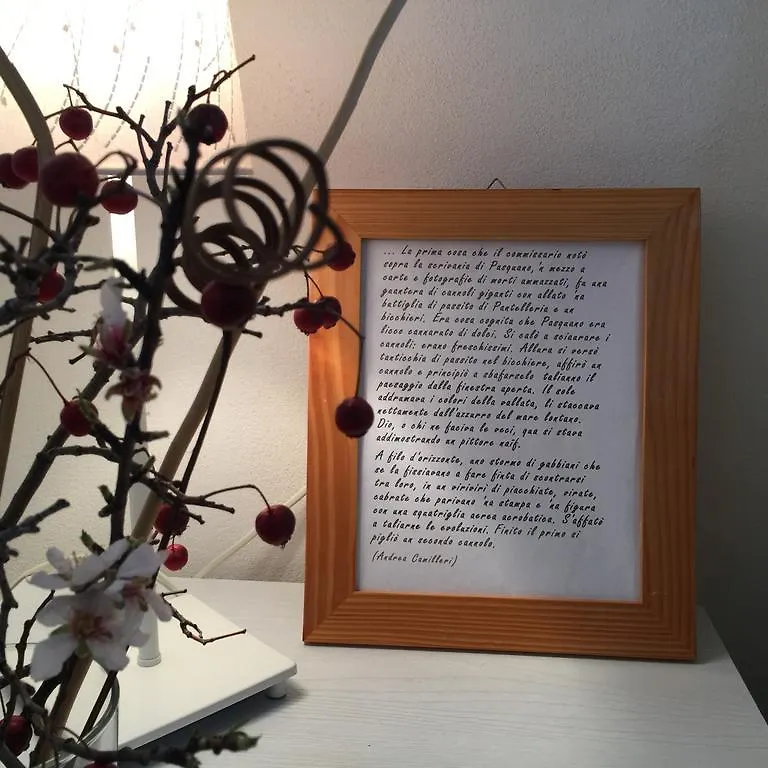 ... La prima cosa che il commissario notò
sopra la scrivania di Pasquano, 'n mezzo a
carte e fotografie di morti ammazzati, fu una
guantera di cannoli giganti con allato 'na
buttiglia di passito di Pantelleria e un
bicchieri. Era cosa cognita che Pasquano era
licco cannaruto di dolci. Si calò a sciaurare i
cannoli: erano freschissimi. Allura si versò
tanticchia di passito nel bicchiere, affirrò un
cannolo e principiò a sbafarselo talianno il
paesaggio dalla finestra aperta. Il sole
addrumava i colori della vallata, li staccava
nettamente dall'azzurro del mare lontano.
Dio, o chi ne faciva le veci, qua si stava
addimostrando un pittore naif.
A filo d'orizzonte, uno stormo di gabbiani che
se la fissiavano a fare finta di scontrarsi
tra loro, in un viriviri di piacchiate, virate,
cabrate che parivano 'na stampa e 'na figura
con una squatriglia aerea acrobatica. S'affatò
a taliarne le evoluzioni. Finito il primo si
pigliò un secondo cannolo.
(Andrea Camilleri)